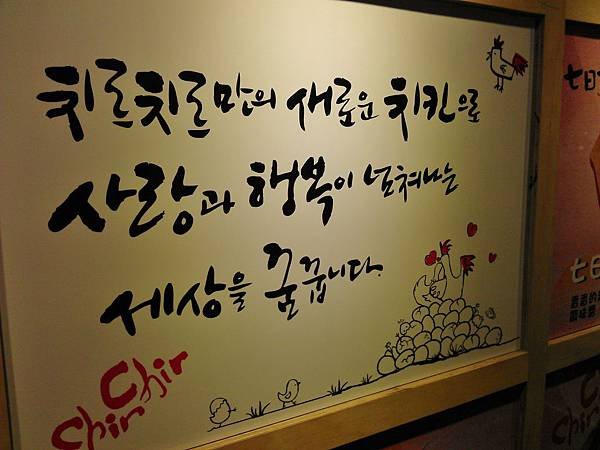 치르치르만의 새로운 치킨으로
사랑과 행복이 넘쳐나는
세상을 꿈꿉니다.
Chir
Chir
七日
七日
香